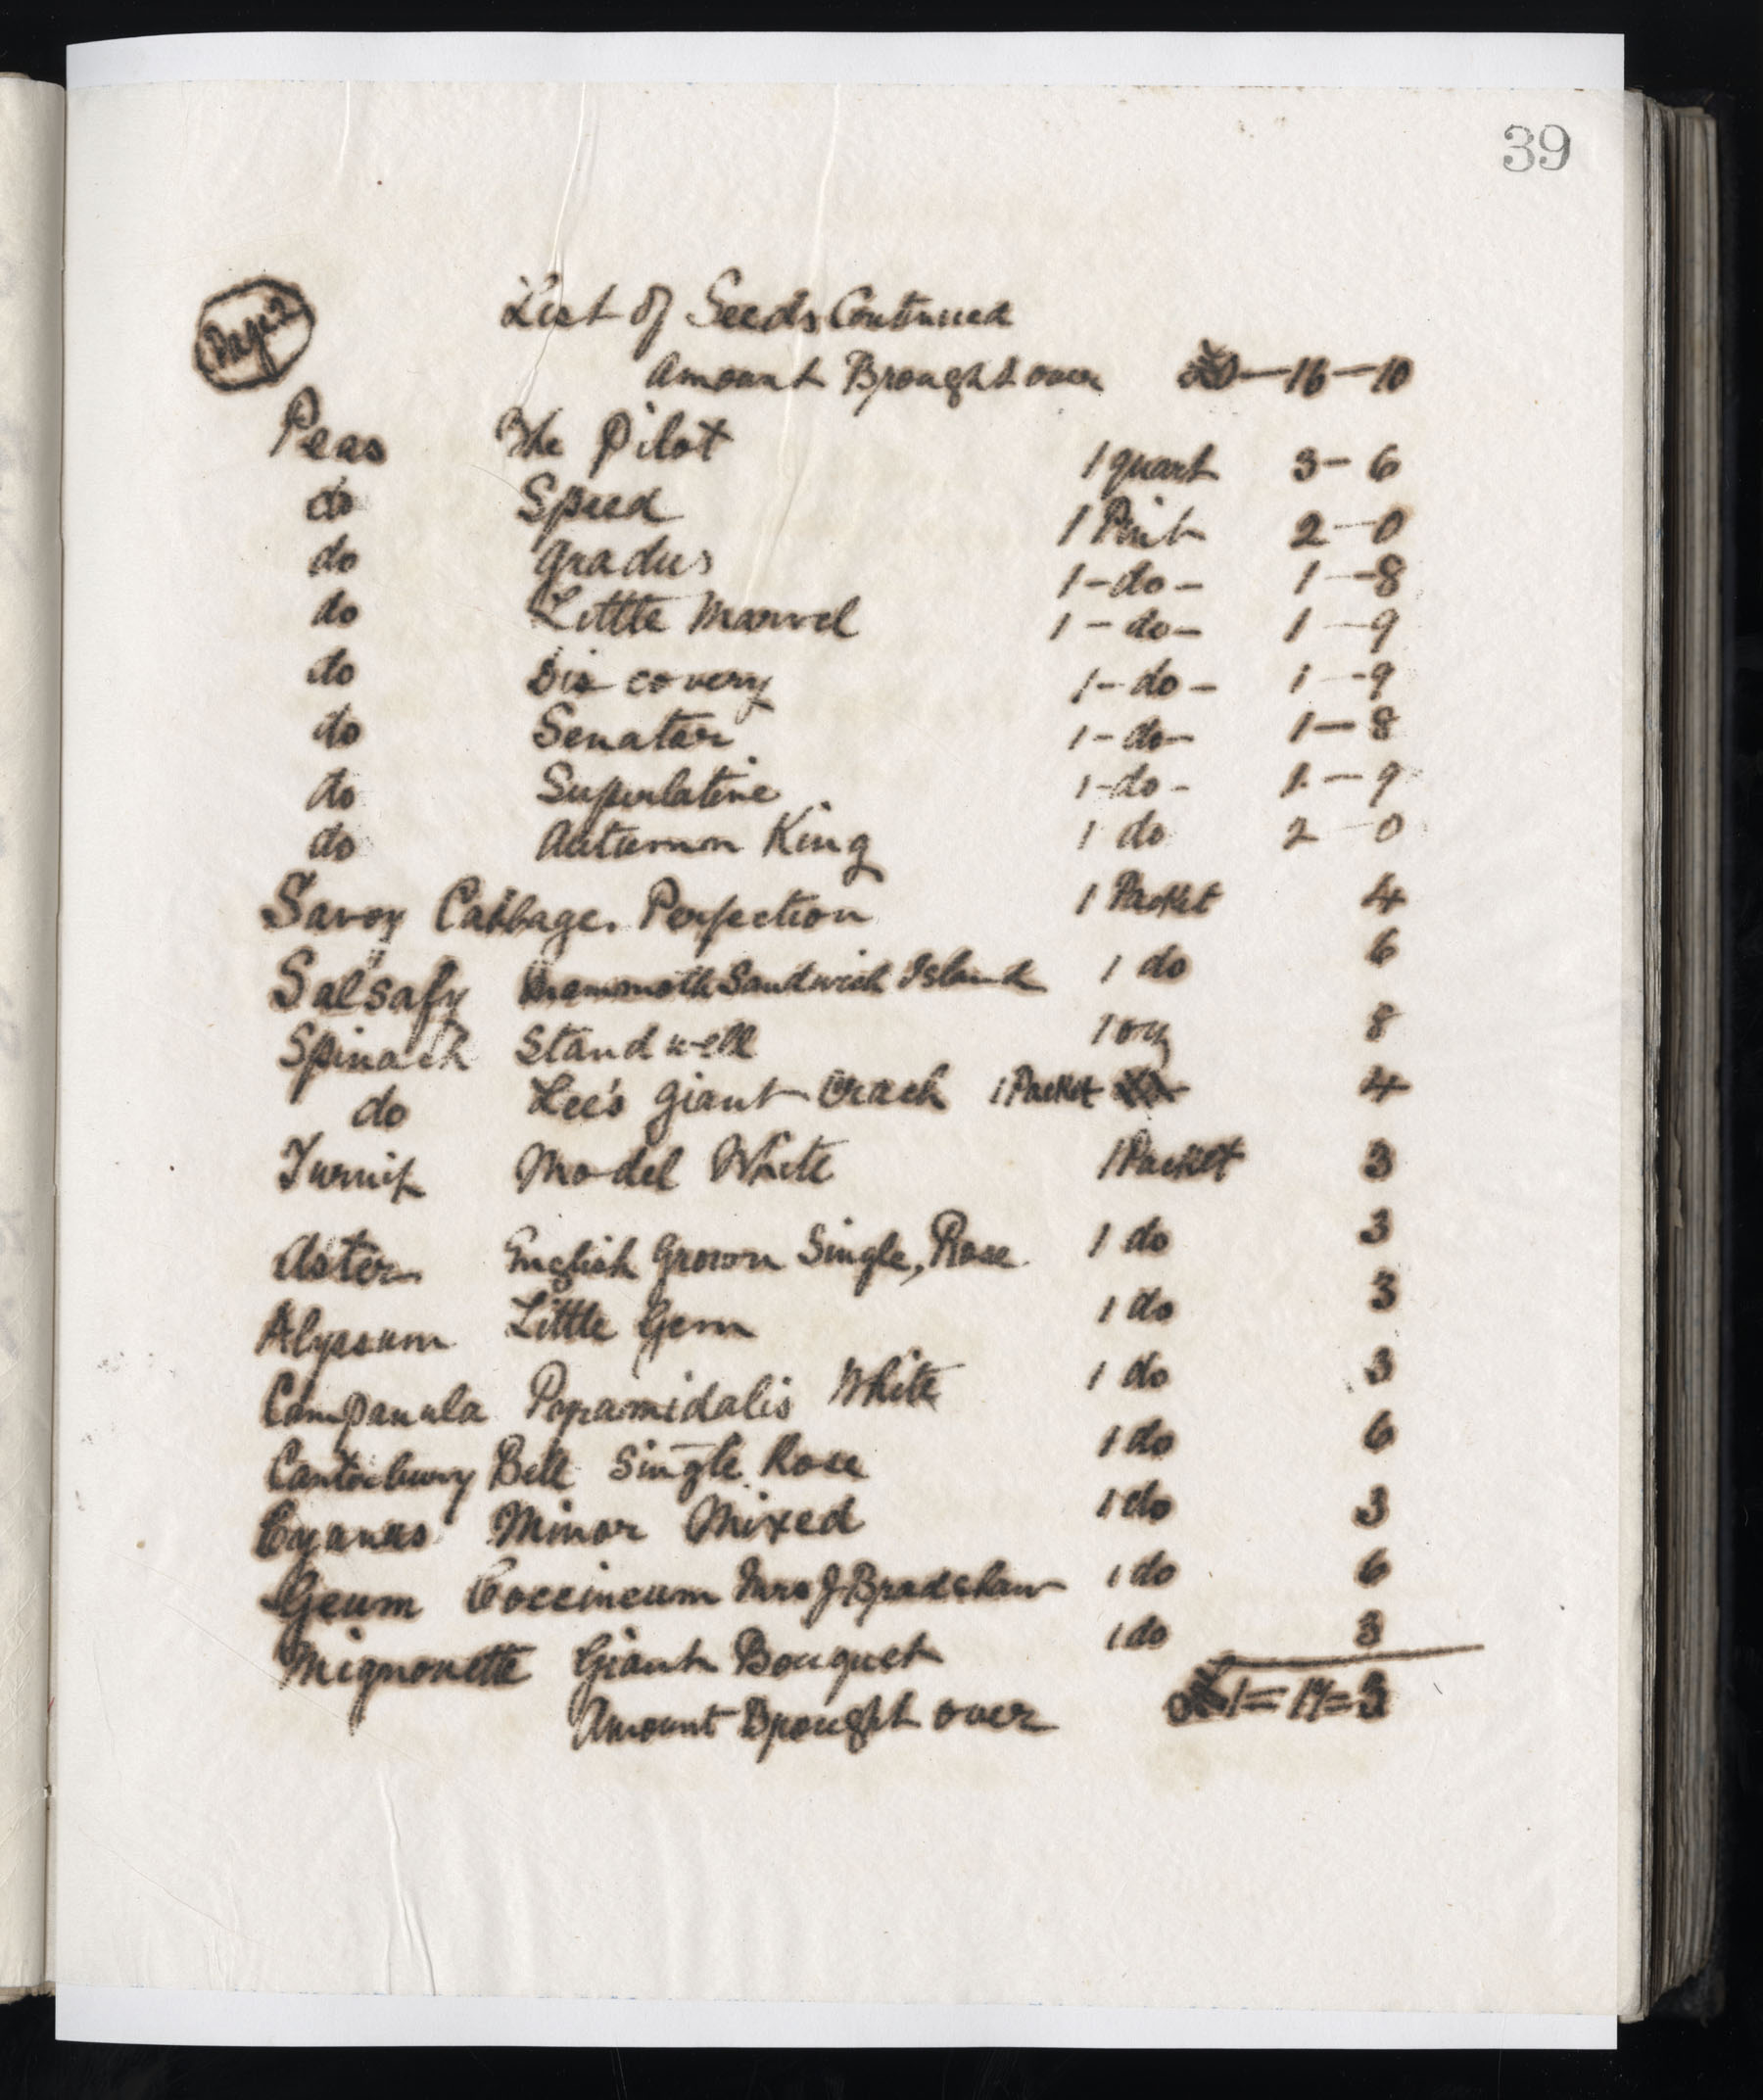 39
Page 2
List of Seeds Continued
Amount Brought over £0—16—10
Peas The Pilot 1 quart 3–6
do Speed 1 Pint 2–0
do Gradus 1–do– 1–8
do Little Marvel 1–do– 1–9
do Discovery 1–do– 1–9
do Senator 1–do– 1–8
do Superlative 1–do– 1–9
do Autumn King 1 do 2 0
Savoy Cabbage. Perfection 1 Packet 4
Salsafy Mammoth Sandwich Island 1 do 6
Spinach Standwell 1 oz 8
do Lee's Giant Orach 1 Packet 4
Turnip Model White 1 Packet 3
Aster English Grown Single, Rose 1 do 3
Alyssum Little Gem 1 do 3
Campanula Pyramidalis White 1 do 3
Canterbury Bell Single Rose 1 do 6
Cyanus Minor Mixed 1 do 3
Geum Coccineum Mrs J Bradshaw 1 do 6
Mignonette Giant Bouquet 1 do 3
Amount Brought over £1=17=3